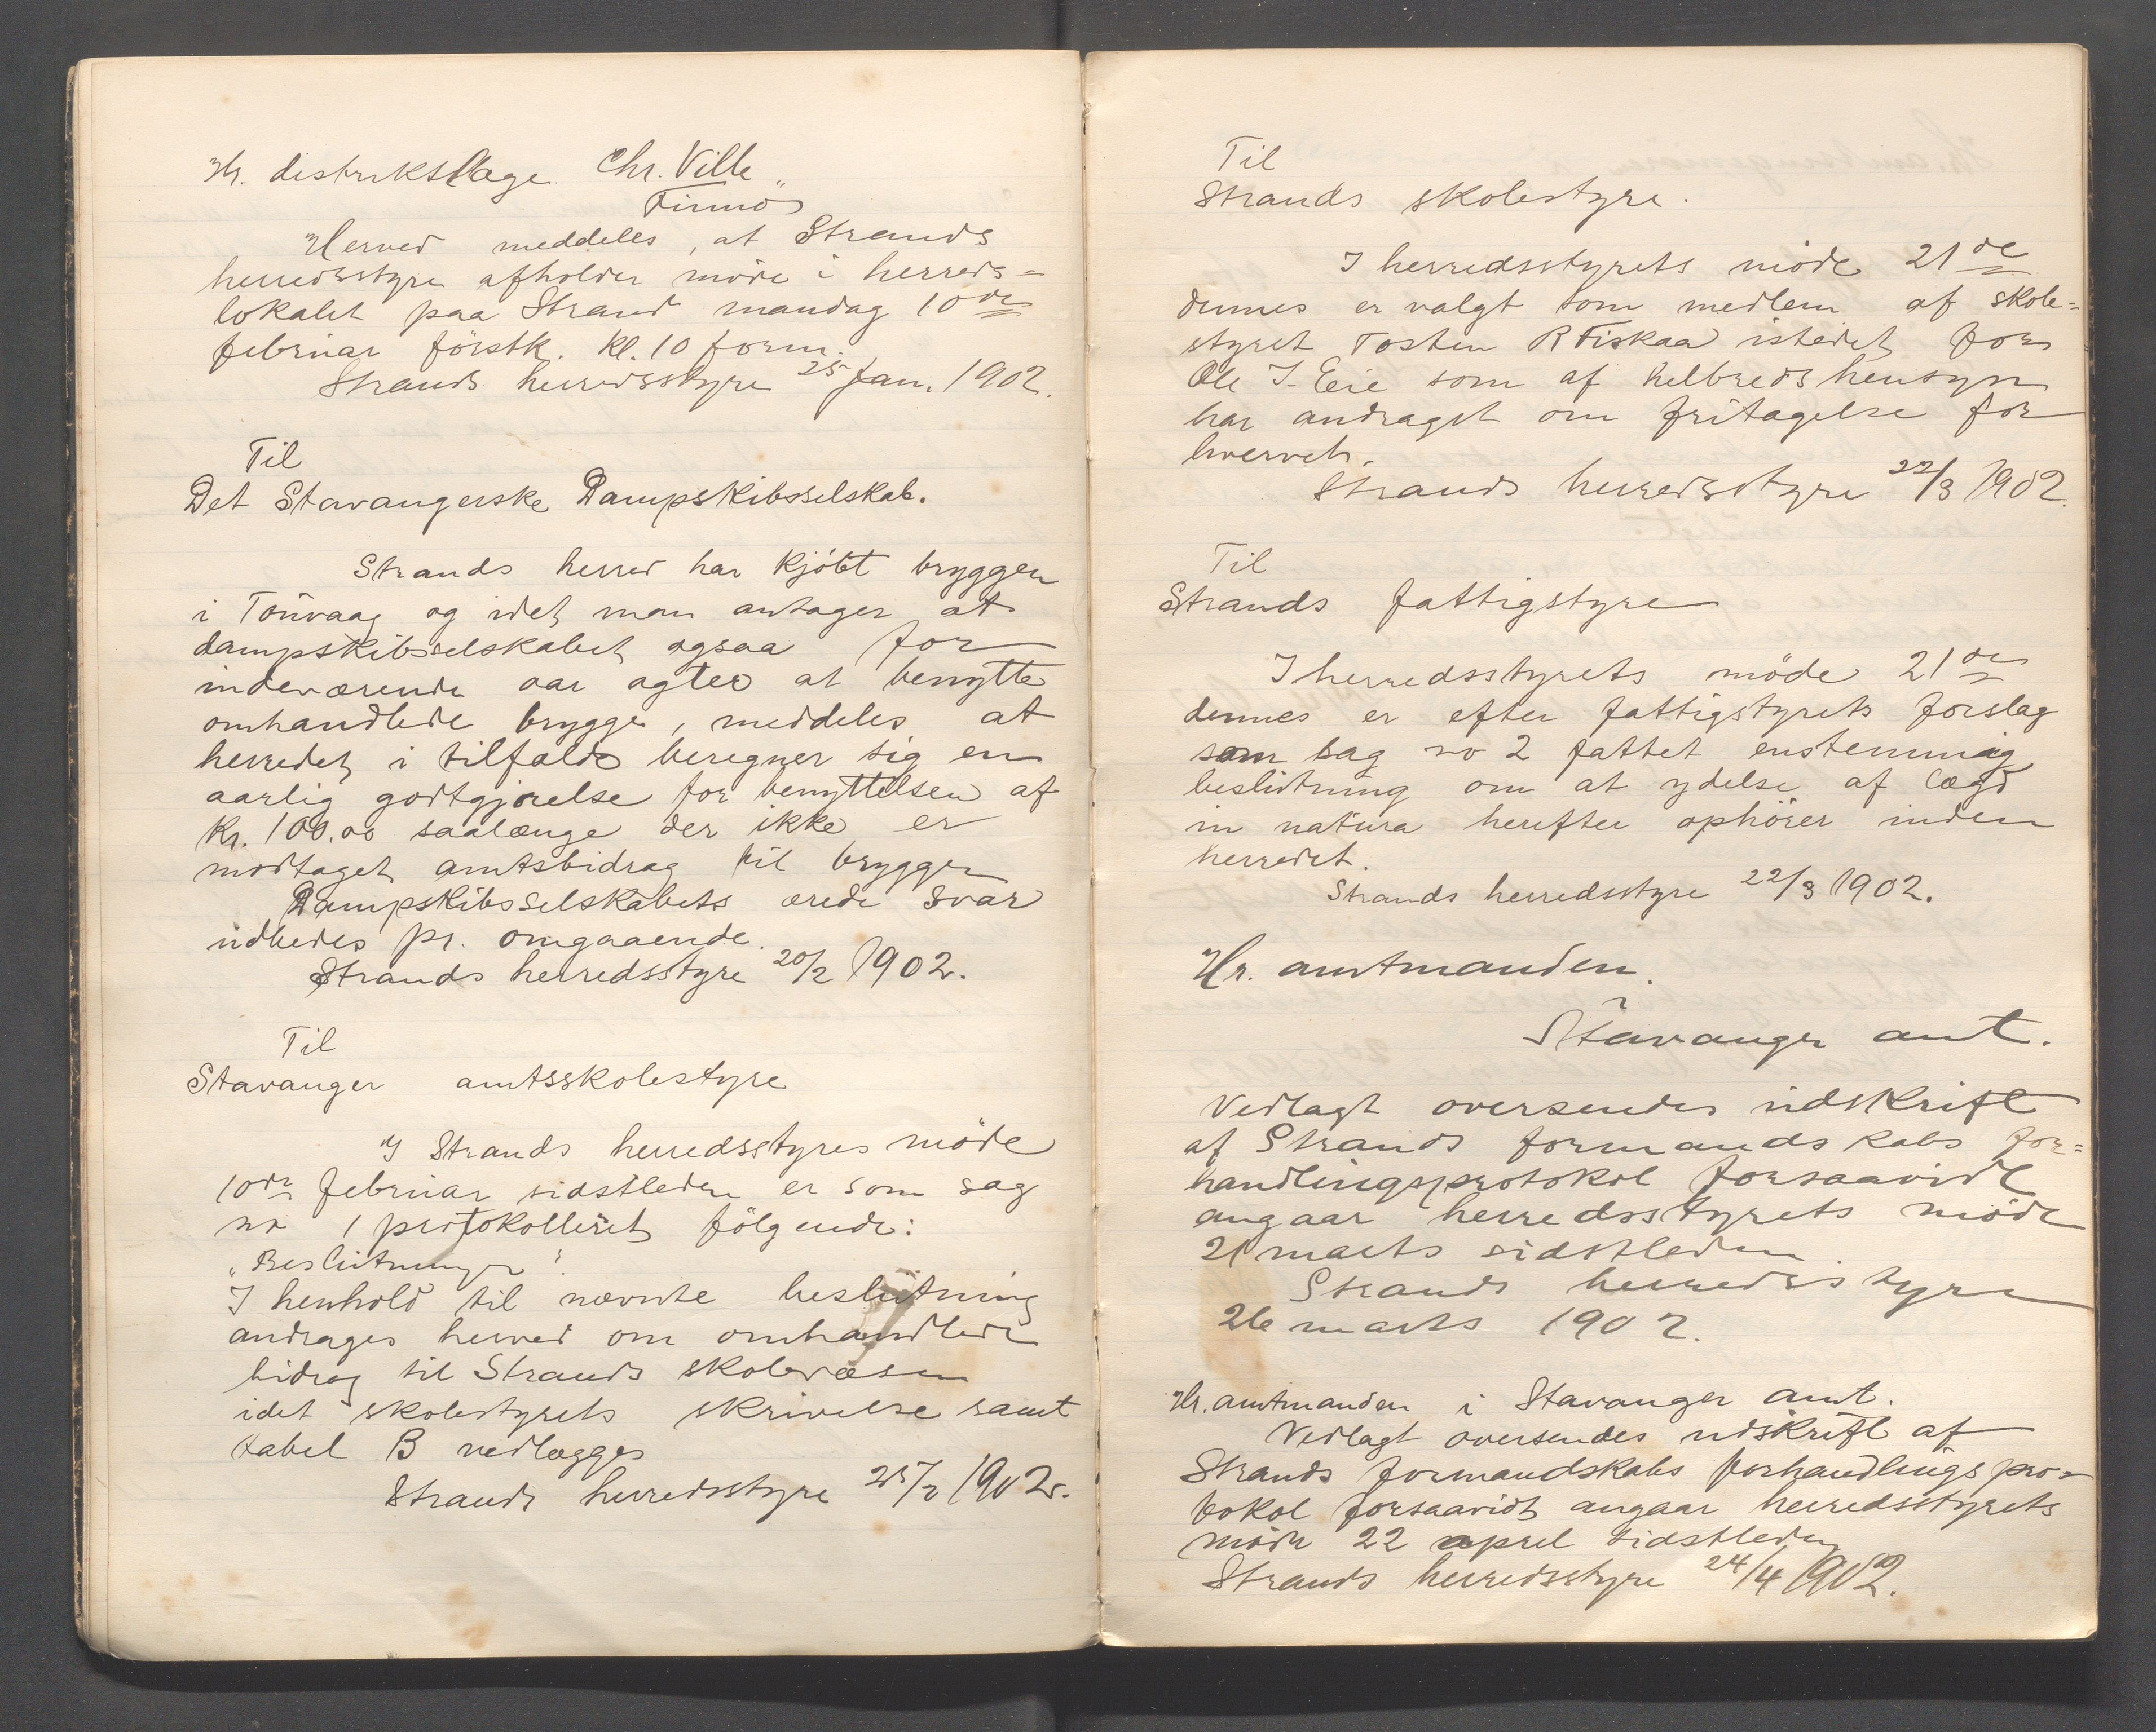 Hr. distriktslæge Chr. Ville
Finnö
Herved meddeles, at Strands
herredsstyre afholder møde i herreds=
lokalet paa Strand mandag 10de
februar förstk. Kl. 10 form.
Strands herredsstyre 25 Jan. 1902.
Til
Det Stavangerske Dampskibsselskab.
Strands herred har kjöbt bryggen
i Tøuvaag og idet man antager at
dampskibsselskabet ogsaa for
indeværende aar agter at benytte
omhandlede brygge, meddeles at
herredet i tilfælde beregner sig en
aarlig godtgjørelse for benyttelsen af
Kr. 100.00 saalænge der ikke er
modtaget amtsbidrag til bryggen
Dampskibsselskabets ærede svar
udbedes pr. omgaaende.
Strands herredsstyre 20/2 1902.
Til
Stavanger amtsskolestyre
I Strands herredsstyres møde
10de februar sidstleden er som sag
no 1 protokolleret fölgende:
"Beslutninger".
I henhold til nævnte beslutning
andrages herved om omhandlede
bidrag til Strands skolevæsen
idet skolestyrets skrivelse samt
tabel B vedlægges
Strands herredsstyre 25/2 1902.
Til
Strands skolestyre.
I herredsstyrets möde 21de
dennes er valgt som medlem af skole=
styret Tosten R Fiskaa istedet for
Ole J. Eeie som af helbreds hensyn
har andraget om fritagelse for
hvervet.
Strands herredsstyre 22/3 1902.
Til
Strands fattigstyre
I herredsstyrets möde 21de
dennes er efter fattigstyrets forslag
som sag no 2 fattet enstemmig
beslutning om at ydelse af lægd
in natura herefter ophörer inden
herredet.
Strands herredsstyre 22/3 1902.
Hr. amtmanden.
Stavanger amt.
Vedlagt oversendes udskrift
af Strands formandskabs for=
handlingsprotokol forsaavidt
angaar herredsstyrets möde
21 marts sidstleden.
Strands herredsstyre
26 marts 1902.
Hr. amtmanden i Stavanger amt.
Vedlagt oversendes udskrift af
Strands formandskabs forhandlingspro=
tokol forsaavidt angaar herredsstyrets
møde 22 april sidstleden
Strands herredsstyre 24/4 1902.